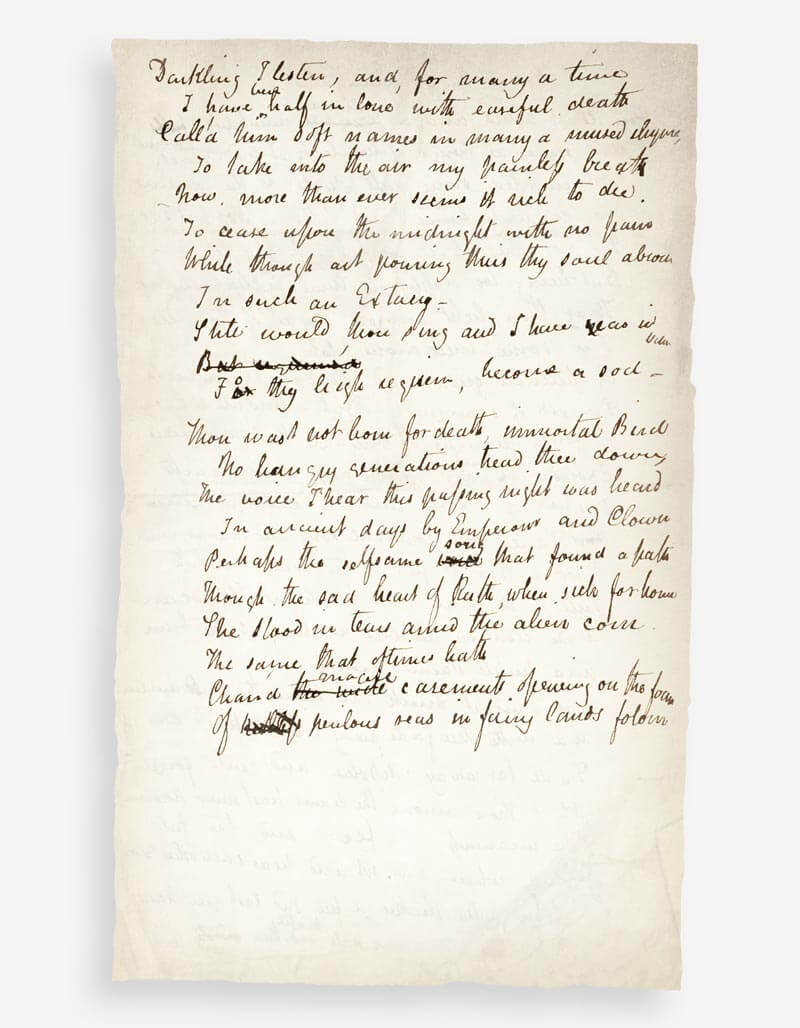 Darkling I listen, and, for many a time
I have been half in love with easeful death
Call'd him soft names in many a mused rhyme,
To take into the air my painless breath
Now, more than ever seems it rich to die.
To cease upon the midnight with no pain
While though art pouring thus thy soul abroad
In such an Extacy –
Still would thou sing and I have ears in vain
But requiem'd
For thy high requiem, become a sod –
Thou wast not born for death, immortal Bird
No hungry generations tread thee down,
The voice I hear this passing night was heard
In ancient days by Emperour and Clown
Perhaps the selfsame voice song that found a path
Through the sad heart of Ruth, when sick for home
She stood in tears amid the alien corn.
The same that oftimes hath
Charm'd the wide magic casements, opening on the foam
Of perilous seas in fairy lands folorn